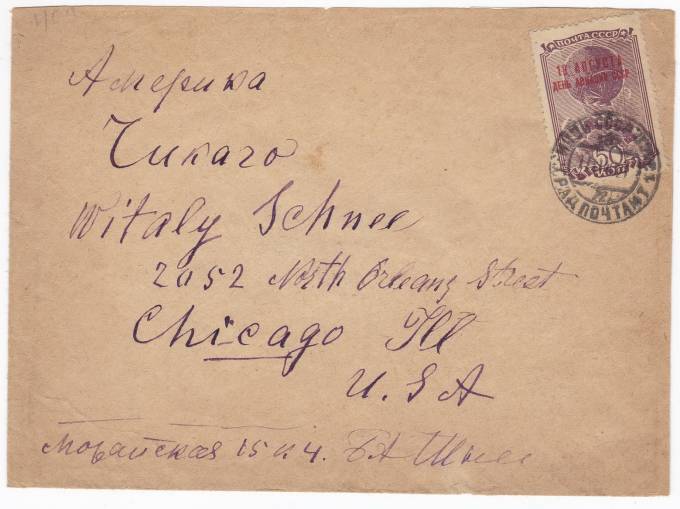 ПОЧТА СССР
18 АВГУСТА
ДЕНЬ АВИАЦИИ СССР
50
ПОЧТАМТ
Америка
Чикаго
Witaly Schnee
2052 North Orleang Street
Chicago Ill
U.S.A
15 к 4. БА Шнее